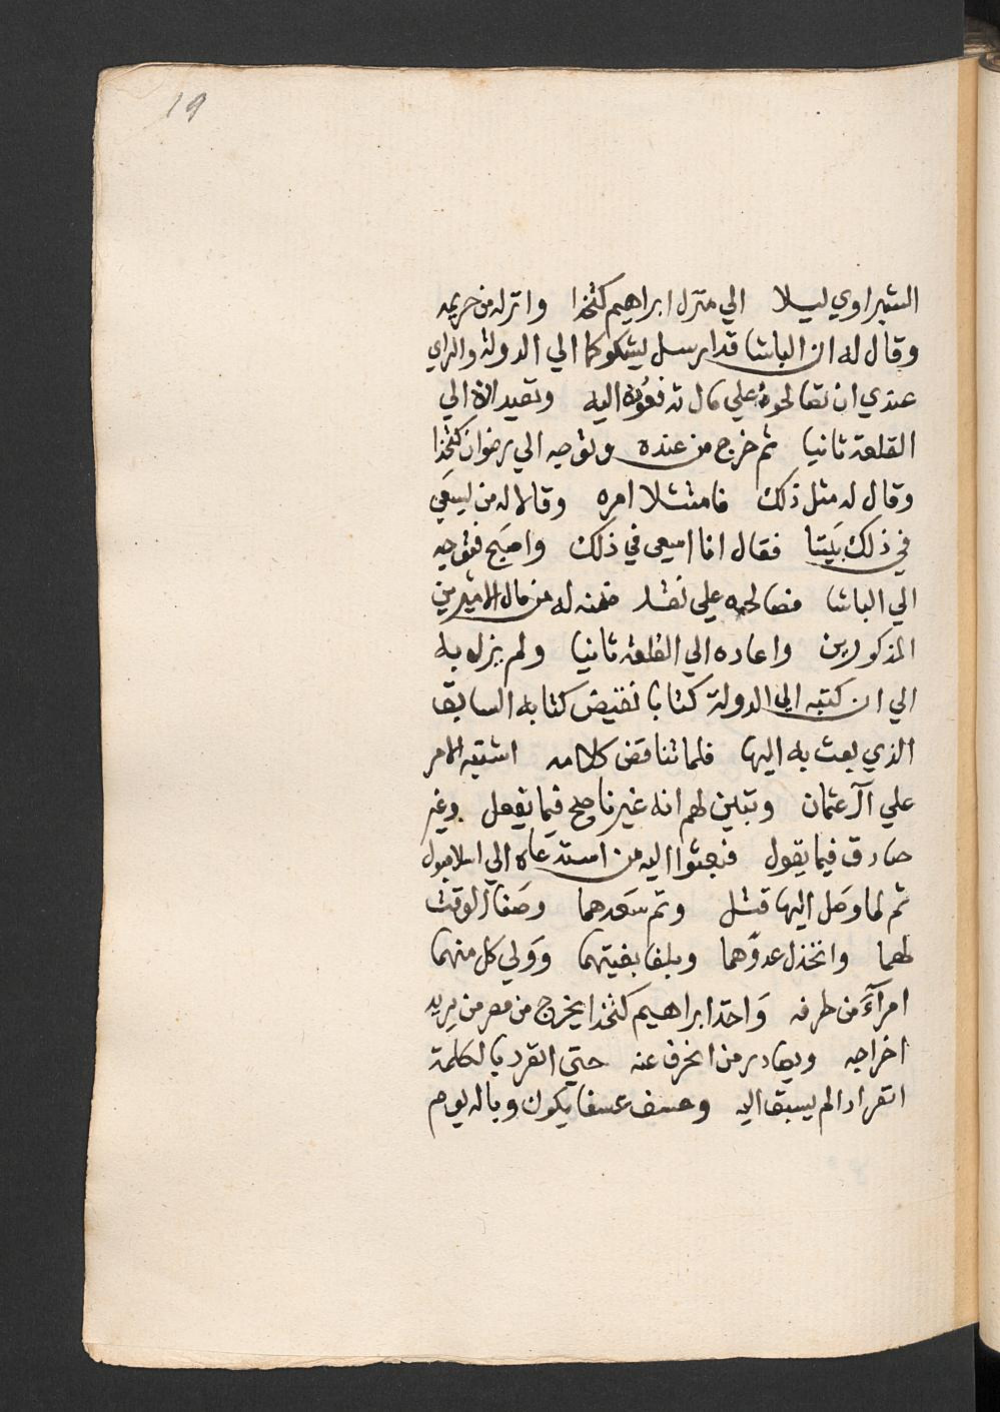 19
الشبراوي ليلا الي منزل ابراهيم كتخدا وانزله من حريمه
وقال له ان الباشا قد ارسل يشكوكما الي الدولة والراي
عندي ان تصالحوه علي مال تدفعونه اليه ونعيد الاالي
القلعة ثانيا ثم خرج من عنده وتوجه الي رضوان كتخدا
وقال له مثل ذلك فامتثلا امره وقالا له من يسعَي
في ذلك بَيننا فقال انا اسعى في ذلك واصبَح فتوجه
الي الباشا فصالحه علي نقد ضمنه له من مال الاميرين
المذكورين واعاده الي القلعة ثانيا ولم يزل به
الي ان كتب الي الدولة كتابا نقيض كتابه السابق
الذي بعث به اليها فلما تناقض كلامه اشتبه الامر
علي آل عثمان وتبين لهم انه غير ناصح فيما يفعل وغير
صادق فيما يقول فبعثوا اليه من استدعاه الي اسلامبول
ثم لما وصَل اليها قتل وتم سَعدهما وصَفا الوقت
لهما وانخذل عدوّهما وبلغا بغيتهما وَوَلي كل منهما
امرآءَ من طرفه وَاخذ ابراهيم كتخدا يخرج من مصر من يريد
اخراجه ويصادر من انحرف عنه حتي انفرد بالكلمة
انفرادا لم يسبق اليه وعسف عسفا يكون وباله يوم